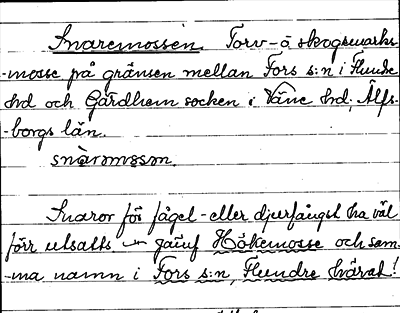 Snaremossen. Torv- o skogsmarks-
-mosse på gränsen mellan Fors s:n i Flundre
hd och Gärdhem socken i Väne hd, Älfs-
-borgs län.
Snaror för fågel- eller djurfångst ha väl
förr utsatts jämf Hökemosse och sam-
-ma namn i Fors s:n, Flundre härad!